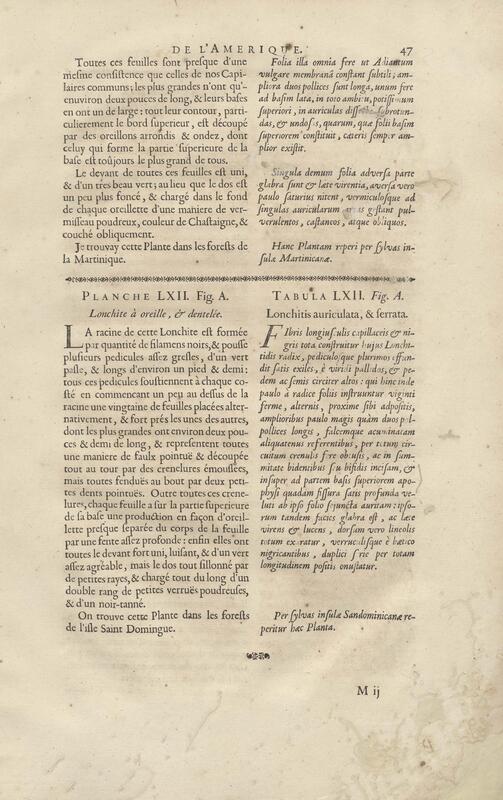 DE L'AMERIQUE. 47
Toutes ces feuilles sont presque d'une
mesme consistence que celles de nos Capi-
laires communs; les plus grandes n'ont qu'-
environ deux pouces de long, & leurs bases
en ont un de large: tout leur contour, parti-
culierement le bord superieur, est découpé
par des oreillons arrondis & ondez, dont
celuy qui forme la partie superieure de la
base est toûjours le plus grand de tous.
Le devant de toutes ces feuilles est uni,
& d'un tres beau vert; au lieu que le dos est
un peu plus foncé, & chargé dans le fond
de chaque oreillette d'une maniere de ver-
misseau poudreux, couleur de Chastaigne, &
couché obliquement.
Je trouvay cette Plante dans les forests de
la Martinique.
Folia illa omnia fere ut Adiantum
vulgare membranâ constant subtili; am-
pliora duos pollices sunt longa, unum fere
ad basim lata, in toto ambitu, potissimum
superiori, in auriculas dissecta subrotun-
das, & undosas, quarum, quæ folii basim
superiorem constituit, cæteris semper am-
plior existit.
Singula demum folia adversa parte
glabra sunt & late virentia, aversa vero
paulo saturius nitent, vermiculosque ad
singulas auricularum gestant pul-
verulentos, castaneos, atque obliquos.
Hanc Plantam reperi per sylvas in-
sulæ Martinicanæ.
PLANCHE LXII. Fig. A.
Lonchite à oreille, & dentelée.
LA racine de cette Lonchite est formée
par quantité de filamens noirs, & pousse
plusieurs pedicules assez gresles, d'un vert
pasle, & longs d'environ un pied & demi:
tous ces pedicules soustiennent à chaque co-
sté en commencant un peu au dessus de la
racine une vingtaine de feuilles placées alter-
nativement, & fort prés les unes des autres,
dont les plus grandes ont environ deux pou-
ces & demi de long, & representent toutes
une maniere de faulx pointuë & découpée
tout au tour par des crenelures émoussées,
mais toutes fenduës au bout par deux peti-
tes dents pointuës. Outre toutes ces crene-
lures, chaque feuille a sur la partie superieure
de sa base une production en façon d'oreil-
lette presque separée du corps de la feuille
par une fente assez profonde: enfin elles ont
toutes le devant fort uni, luisant, & d'un vert
assez agréable, mais le dos tout sillonné par
de petites rayes, & chargé tout du long d'un
double rang de petites verruës poudreuses,
& d'un noir-tanné.
On trouve cette Plante dans les forests
de l'isle Saint Domingue.
TABULA LXII. Fig. A.
Lonchitis auriculata, & serrata.
FIbris longiusculis capillaceis & ni-
gris tota construitur hujus Lonchi-
tidis radix, pediculosque plurimos effun-
dit satis exiles, è viridi pallidos, & pe-
dem ac semis circiter altos: qui hinc inde
paulo à radice foliis instruuntur viginti
ferme, alternis, proxime sibi adpositis,
amplioribus paulo magis quam duos pol-
pollices longis, falcemque acuminatam
aliquatenus referentibus, per totum cir-
cuitum crenulis fere obtusis, ac in sum-
mitate bidentibus seu bifidis incisam, &
insuper ad partem basis superiorem apo-
physi quadam fissura satis profunda ve-
luti ab ipso folio sejuncta auritam: ipso-
rum tandem facies glabra est, ac læte
virens & lucens, dorsum vero lineolis
totum exaratur, verruculisque è bætico
nigricantibus, duplici serie per totam
longitudinem positis onustatur.
Per sylvas insulæ Sandominicanæ re-
peritur hæc Planta.
M ij